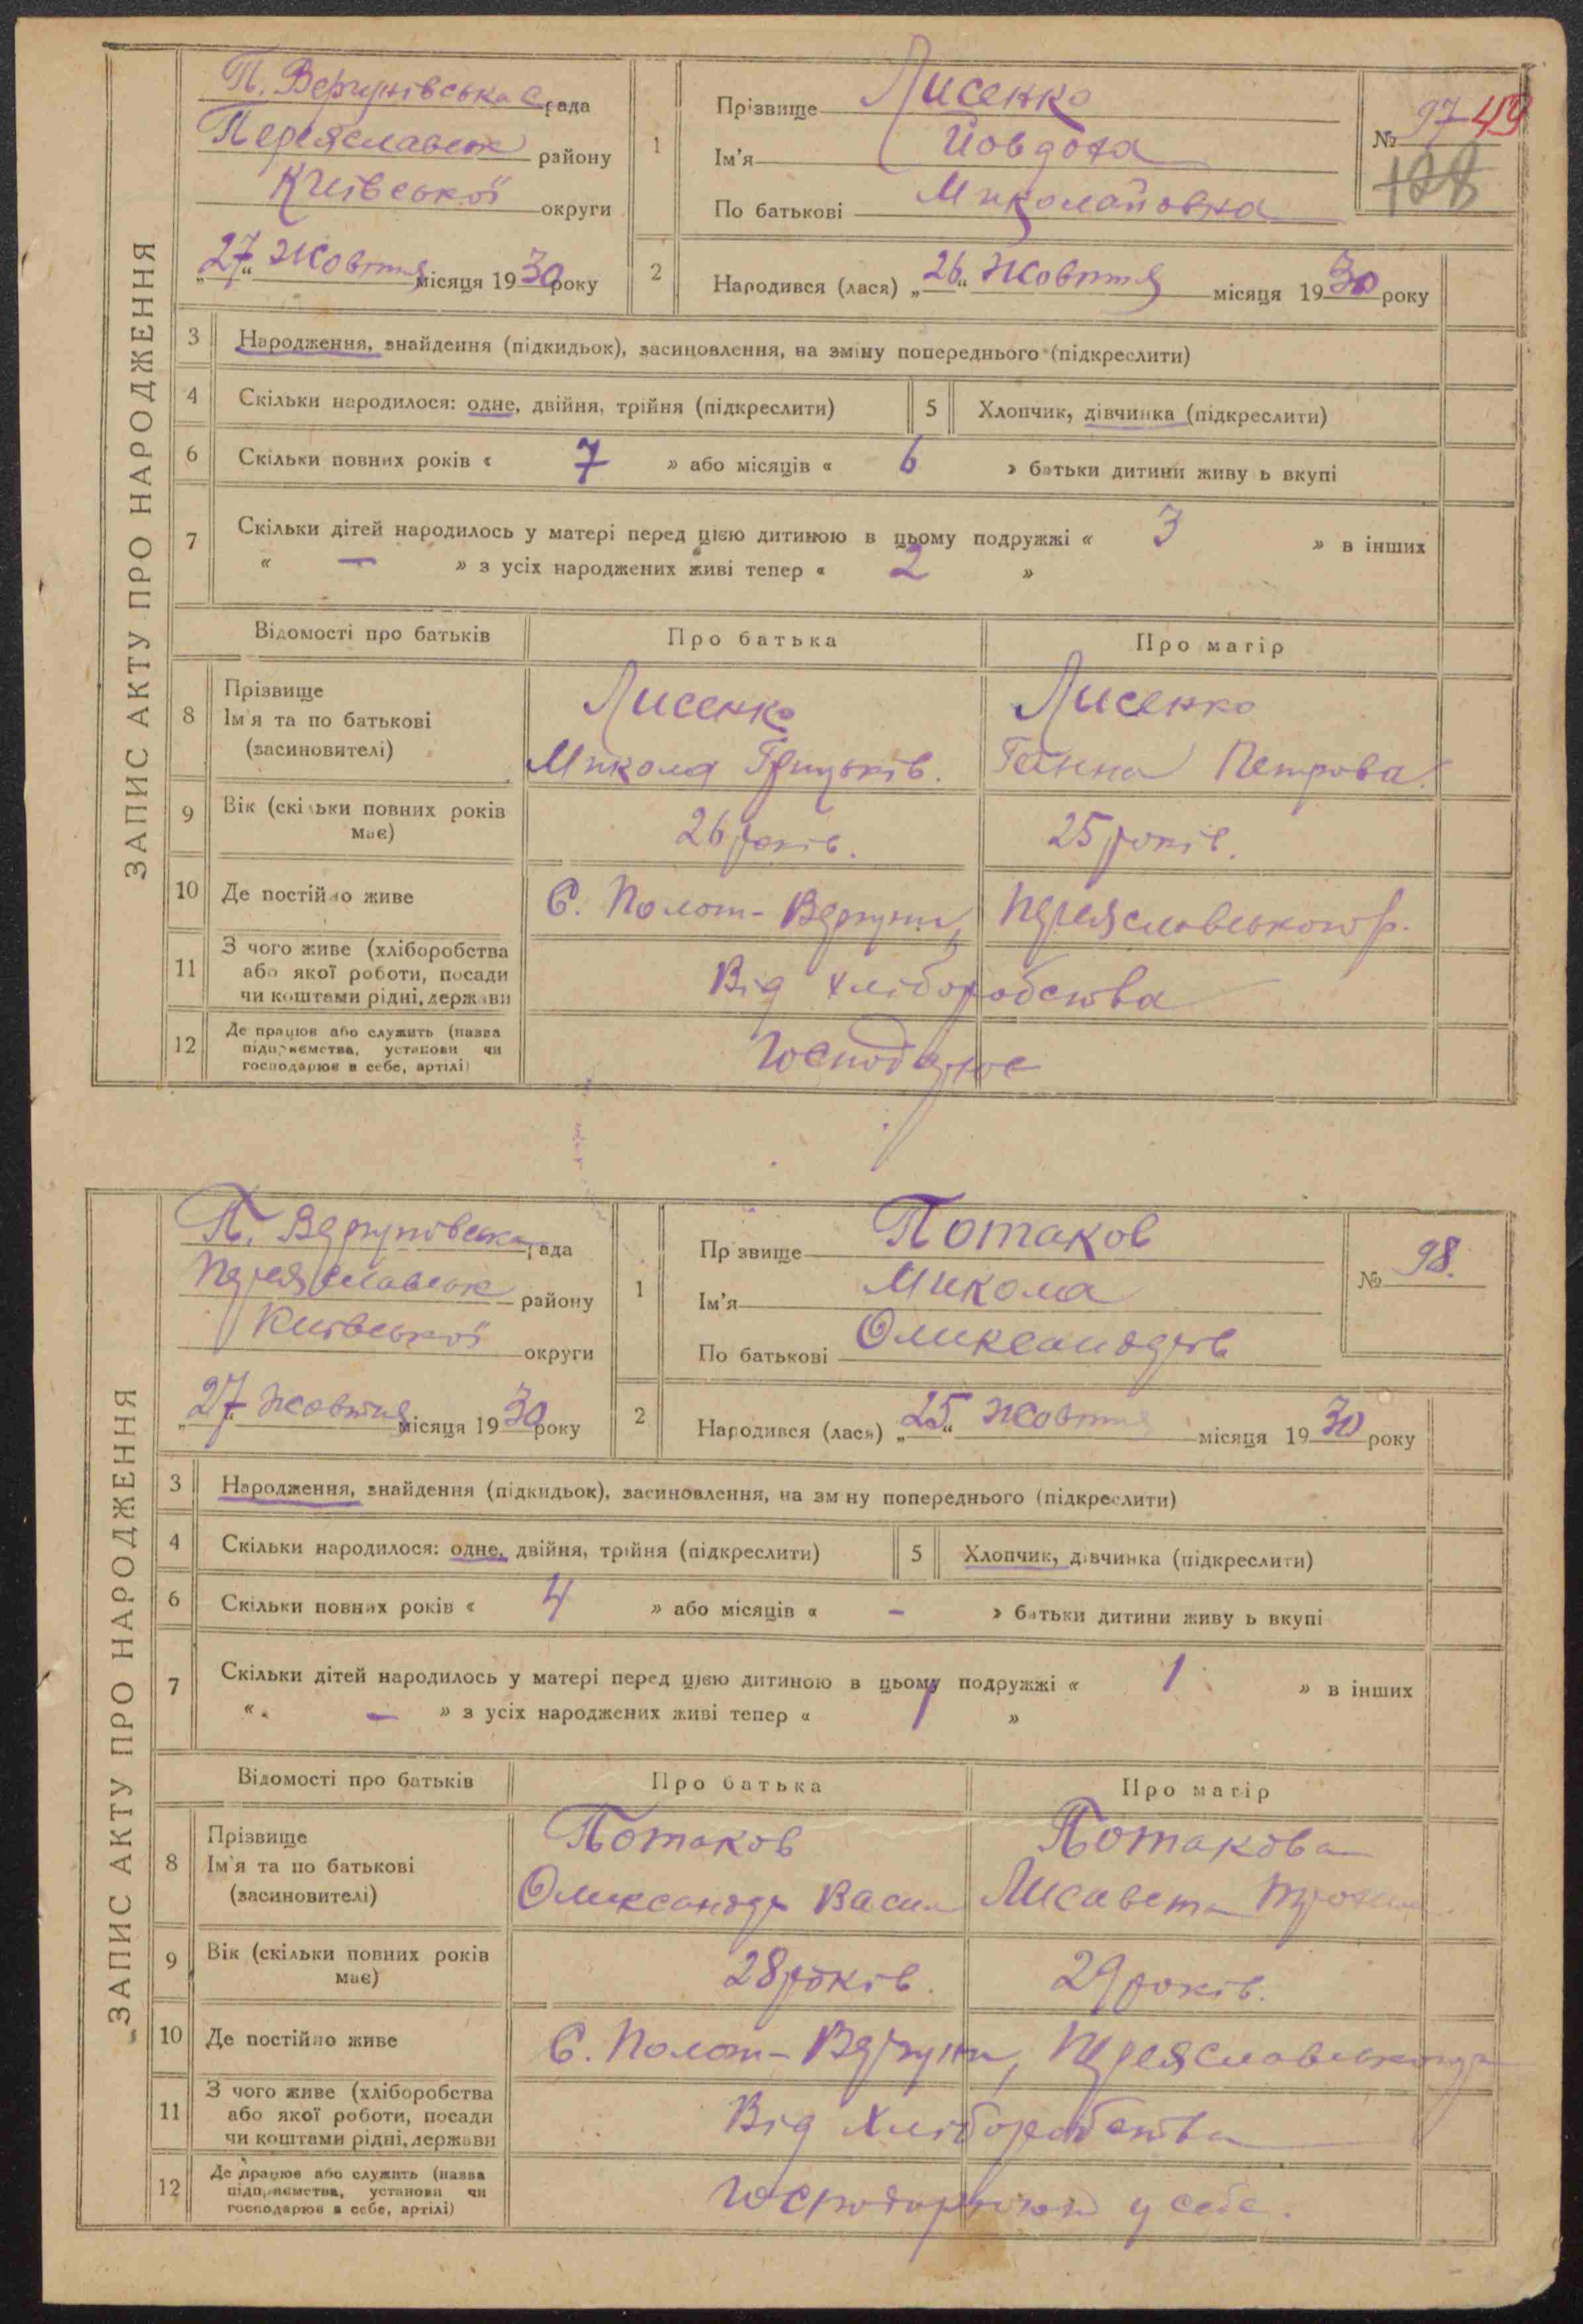 ЗАПИС АКТУ ПРО НАРОДЖЕННЯ
П. Вергунівська С. рада
Переяславськ району
Київської округи
„27“ Жовтня місяця 1930 року
1
Прізвище Лисенко
Ім'я Йовдоха
По батькові Миколайовна
№ 97 49
128
2
Народився (лася) „26“ Жовтня місяця 1930 року
3 Народження, знайдення (підкидьок), засиновлення, на зміну попереднього (підкреслити)
4 Скільки народилося: одне, двійня, трійня (підкреслити) 5 Хлопчик, дівчинка (підкреслити)
6 Скільки повних років « 7 » або місяців « 6 » батьки дитини живу ь вкупі
7 Скільки дітей народилось у матері перед цією дитиною в цьому подружжі « 3 » в інших
« — » з усіх народжених живі тепер « 2 »
Відомості про батьків Про батька Про матір
8 Прізвище
Ім'я та по батькові
(засиновителі)
Лисенко
Микола Грицьків.
Лисенко
Ганна Петрова
9 Вік (скільки повних років
має)
26 років. 25 років.
10 Де постійно живе С. Полот-Вергуни, Переяславського р.
11 З чого живе (хліборобства
або якої роботи, посади
чи коштами рідні, держави
Від хліборобства
12 Де працює або служить (назва
підприємства, установи чи
господарює в себе, артілі)
Господарює
„ЗАПИС АКТУ ПРО НАРОДЖЕННЯ
П. Вергунівська рада
Переяславськ району
Київської округи
„27“ Жовтня місяця 1930 року
1
Пр звище Потаков
Ім'я Микола
По батькові Олександрів
№ 98.
2
Народився (лася) „25“ Жовтня місяця 1930 року
3 Народження, знайдення (підкидьок), засиновлення, на зм ну попереднього (підкреслити)
4 Скільки народилося: одне, двійня, трійня (підкреслити) 5 Хлопчик, дівчинка (підкреслити)
6 Скільки повних років « 4 » або місяців « - » батьки дитини живу ь вкупі
7 Скільки дітей народилось у матері перед цією дитиною в цьому подружжі « 1 » в інших
« — » з усіх народжених живі тепер « 1 »
Відомості про батьків Про батька Про матір
8 Прізвище
Ім'я та по батькові
(засиновителі)
Потаков
Олександр Васил
Потакова
Лисавета
9 Вік (скільки повних років
має)
28 років. 29 років.
10 Де постійно живе С. Полот-Вергуни, Переяславського р
11 З чого живе (хліборобства
або якої роботи, посади
чи коштами рідні, держави
Від Хліборобства
12 Де працює або служить (назва
підприємства, установи чи
господарює в себе, артілі)
у себе.